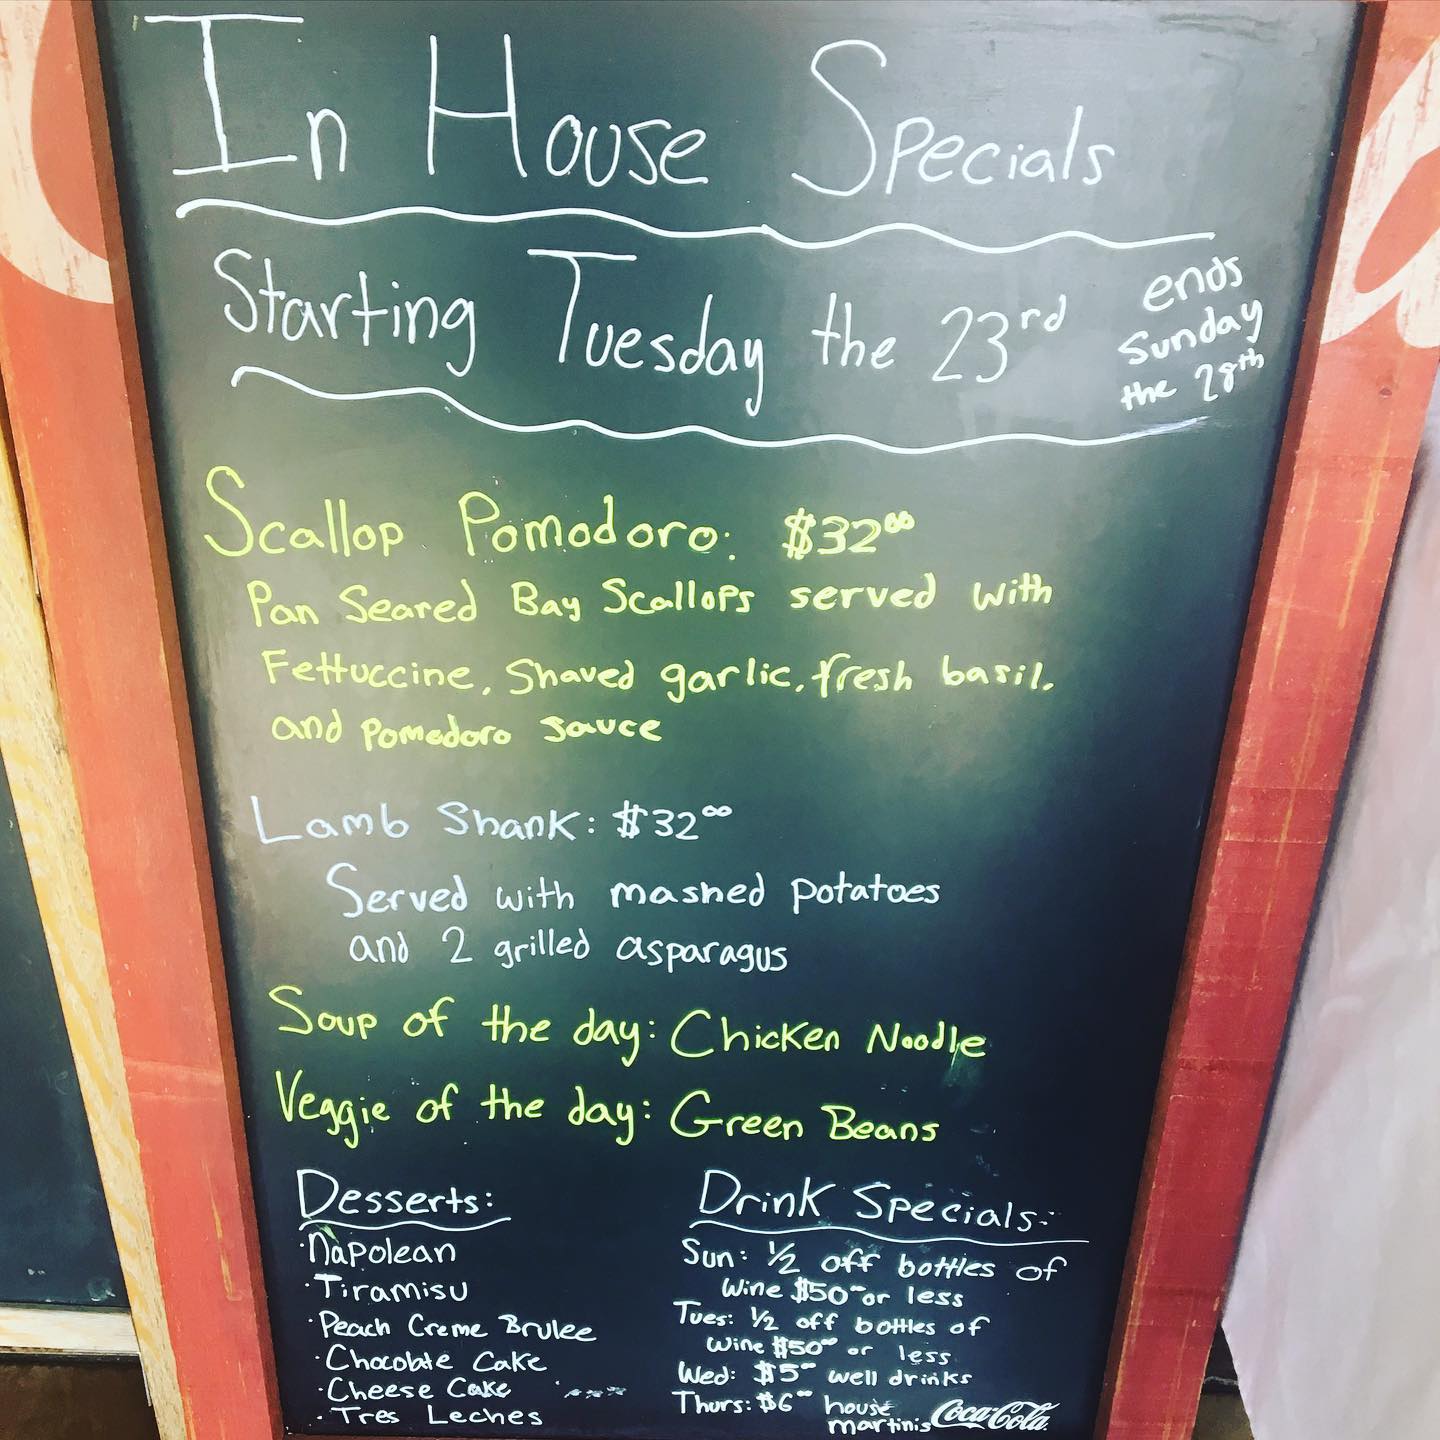 In House Specials
Starting Tuesday the 23rd
ends
Sunday
the 28th
Scallop Pomodoro: $32.00
Pan Seared Bay Scallops served with
Fettuccine, Shaved garlic, fresh basil,
and pomodoro sauce
Lamb Shank: $32.00
Served with mashed potatoes
and 2 grilled asparagus
Soup of the day: Chicken Noodle
Veggie of the day: Green Beans
Desserts:
·Napolean
·Tiramisu
·Peach Creme Brulee
·Chocolate Cake
·Cheese Cake
·Tres Leches
Drink Specials:
Sun: ½ off bottles of
wine $50.00 or less
Tues: ½ off bottles of
wine $50.00 or less
Wed: $5.00 well drinks
Thurs: $6.00 house
martinis
Coca-Cola